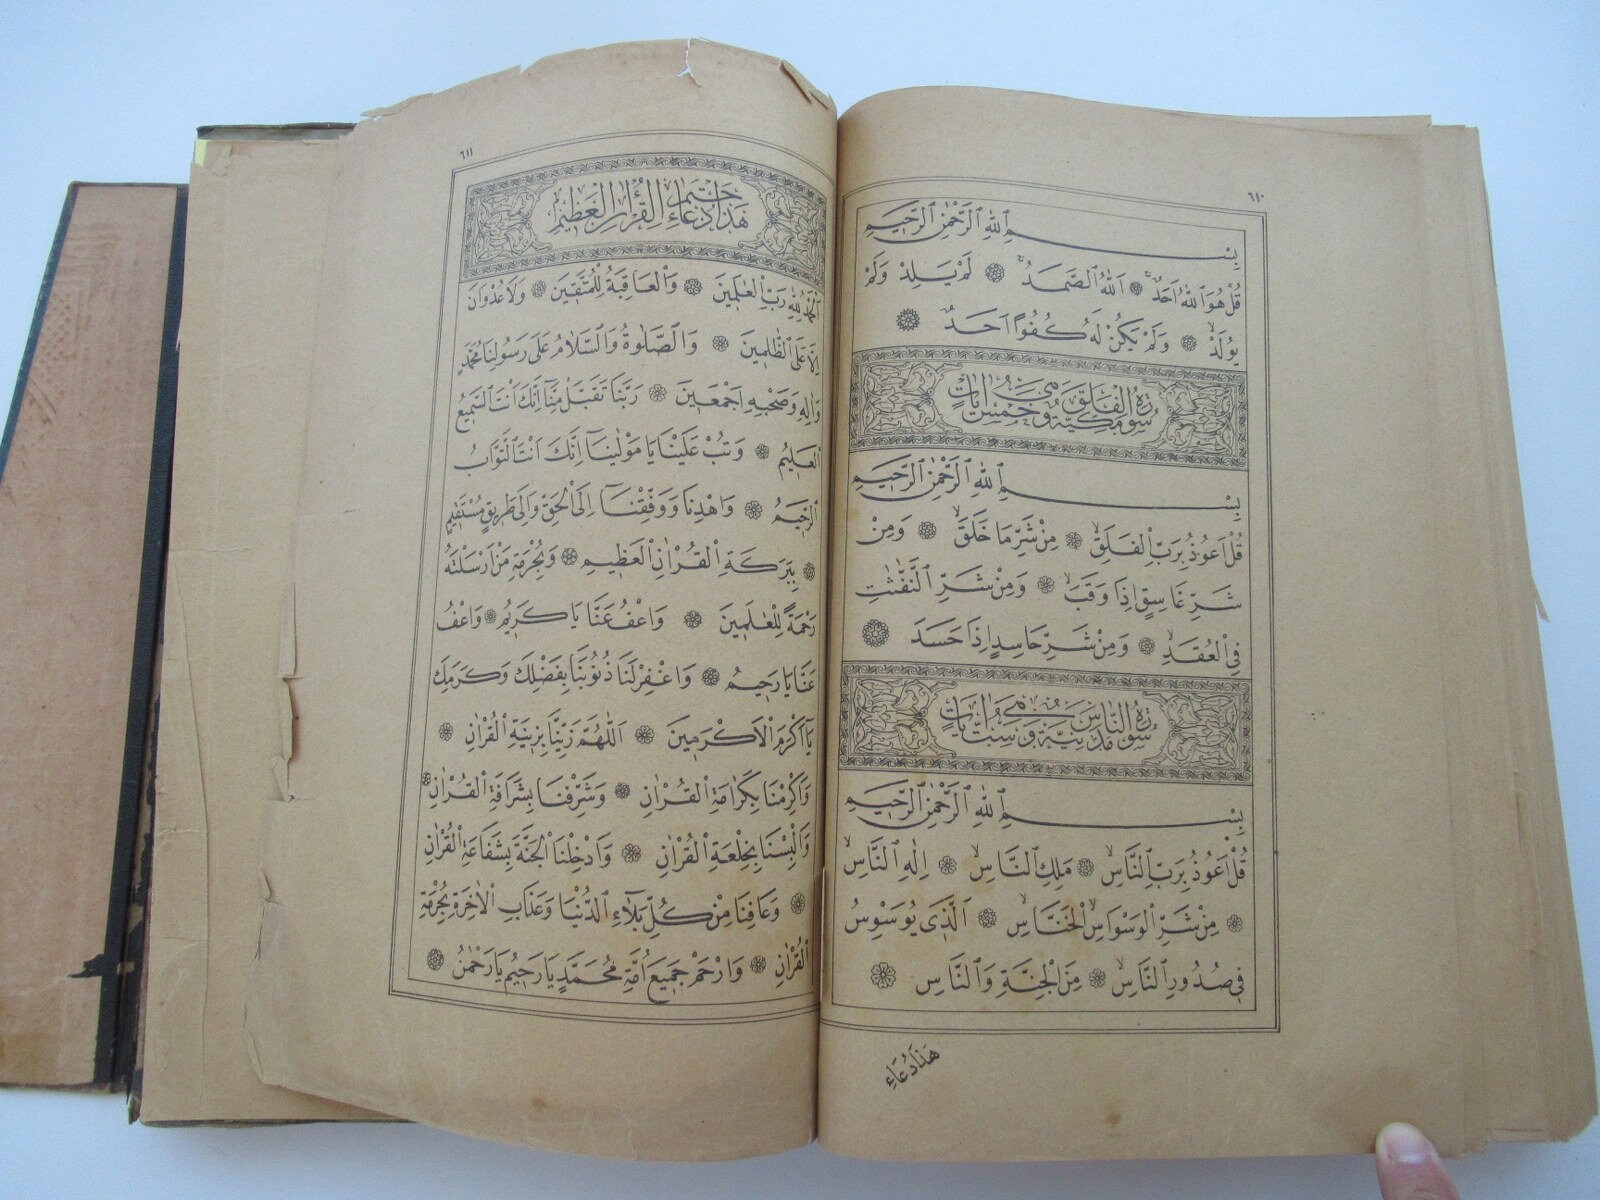 ٦١٠
بِسْــــمِ اللهِ الرَّحْمٰنِ الرَّحِيمِ
قُلْ هُوَ اللهُ اَحَدٌ ۞ اَللهُ الصَّمَدُ ۞ لَمْ يَلِدْ وَلَمْ
يُولَدْ ۞ وَلَمْ يَكُنْ لَهُ كُفُوًا اَحَدٌ ۞
سُورَةُ الْفَلَقِ مَكِّيَّةٌ وَهِيَ خَمْسُ اٰيَاتٍ
بِسْــــمِ اللهِ الرَّحْمٰنِ الرَّحِيمِ
قُلْ اَعُوذُ بِرَبِّ الْفَلَقِ ۞ مِنْ شَرِّ مَا خَلَقَ ۞ وَمِنْ
شَرِّ غَاسِقٍ اِذَا وَقَبَ ۞ وَمِنْ شَرِّ النَّفّٰثٰتِ
فِي الْعُقَدِ ۞ وَمِنْ شَرِّ حَاسِدٍ اِذَا حَسَدَ ۞
سُورَةُ النَّاسِ مَدَنِيَّةٌ وَهِيَ سِتُّ اٰيَاتٍ
بِسْــــمِ اللهِ الرَّحْمٰنِ الرَّحِيمِ
قُلْ اَعُوذُ بِرَبِّ النَّاسِ ۞ مَلِكِ النَّاسِ ۞ اِلٰهِ النَّاسِ
۞ مِنْ شَرِّ الْوَسْوَاسِ الْخَنَّاسِ ۞ اَلَّذِي يُوَسْوِسُ
فِي صُدُورِ النَّاسِ ۞ مِنَ الْجِنَّةِ وَالنَّاسِ ۞
هٰذَا دُعَاءِ
٦١١
هٰذَا دُعَاءِ خَتْمِ الْقُرْاٰنِ الْعَظِيمِ
اَلْحَمْدُ لِلّٰهِ رَبِّ الْعٰلَمِينَ ۞ وَالْعَاقِبَةُ لِلْمُتَّقِينَ ۞ وَلَا عُدْوَانَ
اِلَّا عَلَى الظّٰلِمِينَ ۞ وَالصَّلٰوةُ وَالسَّلَامُ عَلٰى رَسُولِنَا مُحَمَّدٍ
وَاٰلِهِ وَصَحْبِهِ اَجْمَعِينَ ۞ رَبَّنَا تَقَبَّلْ مِنَّا اِنَّكَ اَنْتَ السَّمِيعُ
الْعَلِيمُ ۞ وَتُبْ عَلَيْنَا يَا مَوْلٰينَا اِنَّكَ اَنْتَ التَّوَّابُ
الرَّحِيمُ ۞ وَاهْدِنَا وَوَفِّقْنَا اِلَى الْحَقِّ وَاِلٰى طَرِيقٍ مُسْتَقِيمٍ
۞ بِبَرَكَةِ الْقُرْاٰنِ الْعَظِيمِ ۞ وَبِحُرْمَةِ مَنْ اَرْسَلْتَهُ
رَحْمَةً لِلْعٰلَمِينَ ۞ وَاعْفُ عَنَّا يَا كَرِيمُ ۞ وَاعْفُ
عَنَّا يَا رَحِيمُ ۞ وَاغْفِرْ لَنَا ذُنُوبَنَا بِفَضْلِكَ وَكَرَمِكَ
يَا اَكْرَمَ الْاَكْرَمِينَ ۞ اَللّٰهُمَّ زَيِّنَّا بِزِينَةِ الْقُرْاٰنِ ۞
وَاَكْرِمْنَا بِكَرَامَةِ الْقُرْاٰنِ ۞ وَشَرِّفْنَا بِشَرَافَةِ الْقُرْاٰنِ ۞
وَاَلْبِسْنَا بِخِلْعَةِ الْقُرْاٰنِ ۞ وَاَدْخِلْنَا الْجَنَّةَ بِشَفَاعَةِ الْقُرْاٰنِ
۞ وَعَافِنَا مِنْ كُلِّ بَلَاءِ الدُّنْيَا وَعَذَابِ الْاٰخِرَةِ بِحُرْمَةِ
الْقُرْاٰنِ ۞ وَارْحَمْ جَمِيعَ اُمَّةِ مُحَمَّدٍ يَا رَحِيمُ يَا رَحْمٰنُ ۞